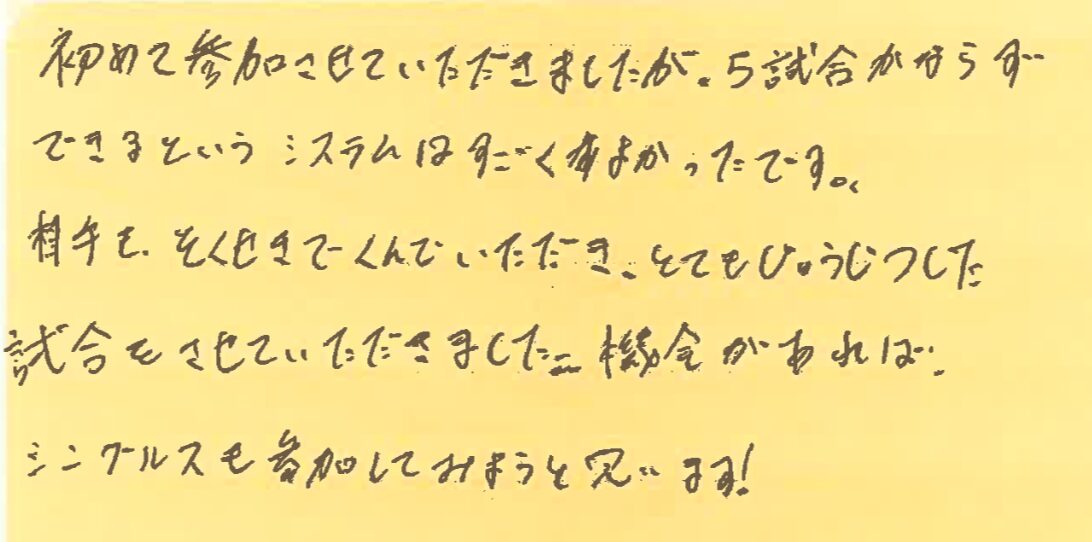 初めて参加させていただきましたが、5試合かならず
できるというシステムはすごくよかったです。
相手も、そくせきでくんでいただき、とてもじゅうじつした
試合をさせていただきました。機会があれば、
シングルスも参加してみようと思います!